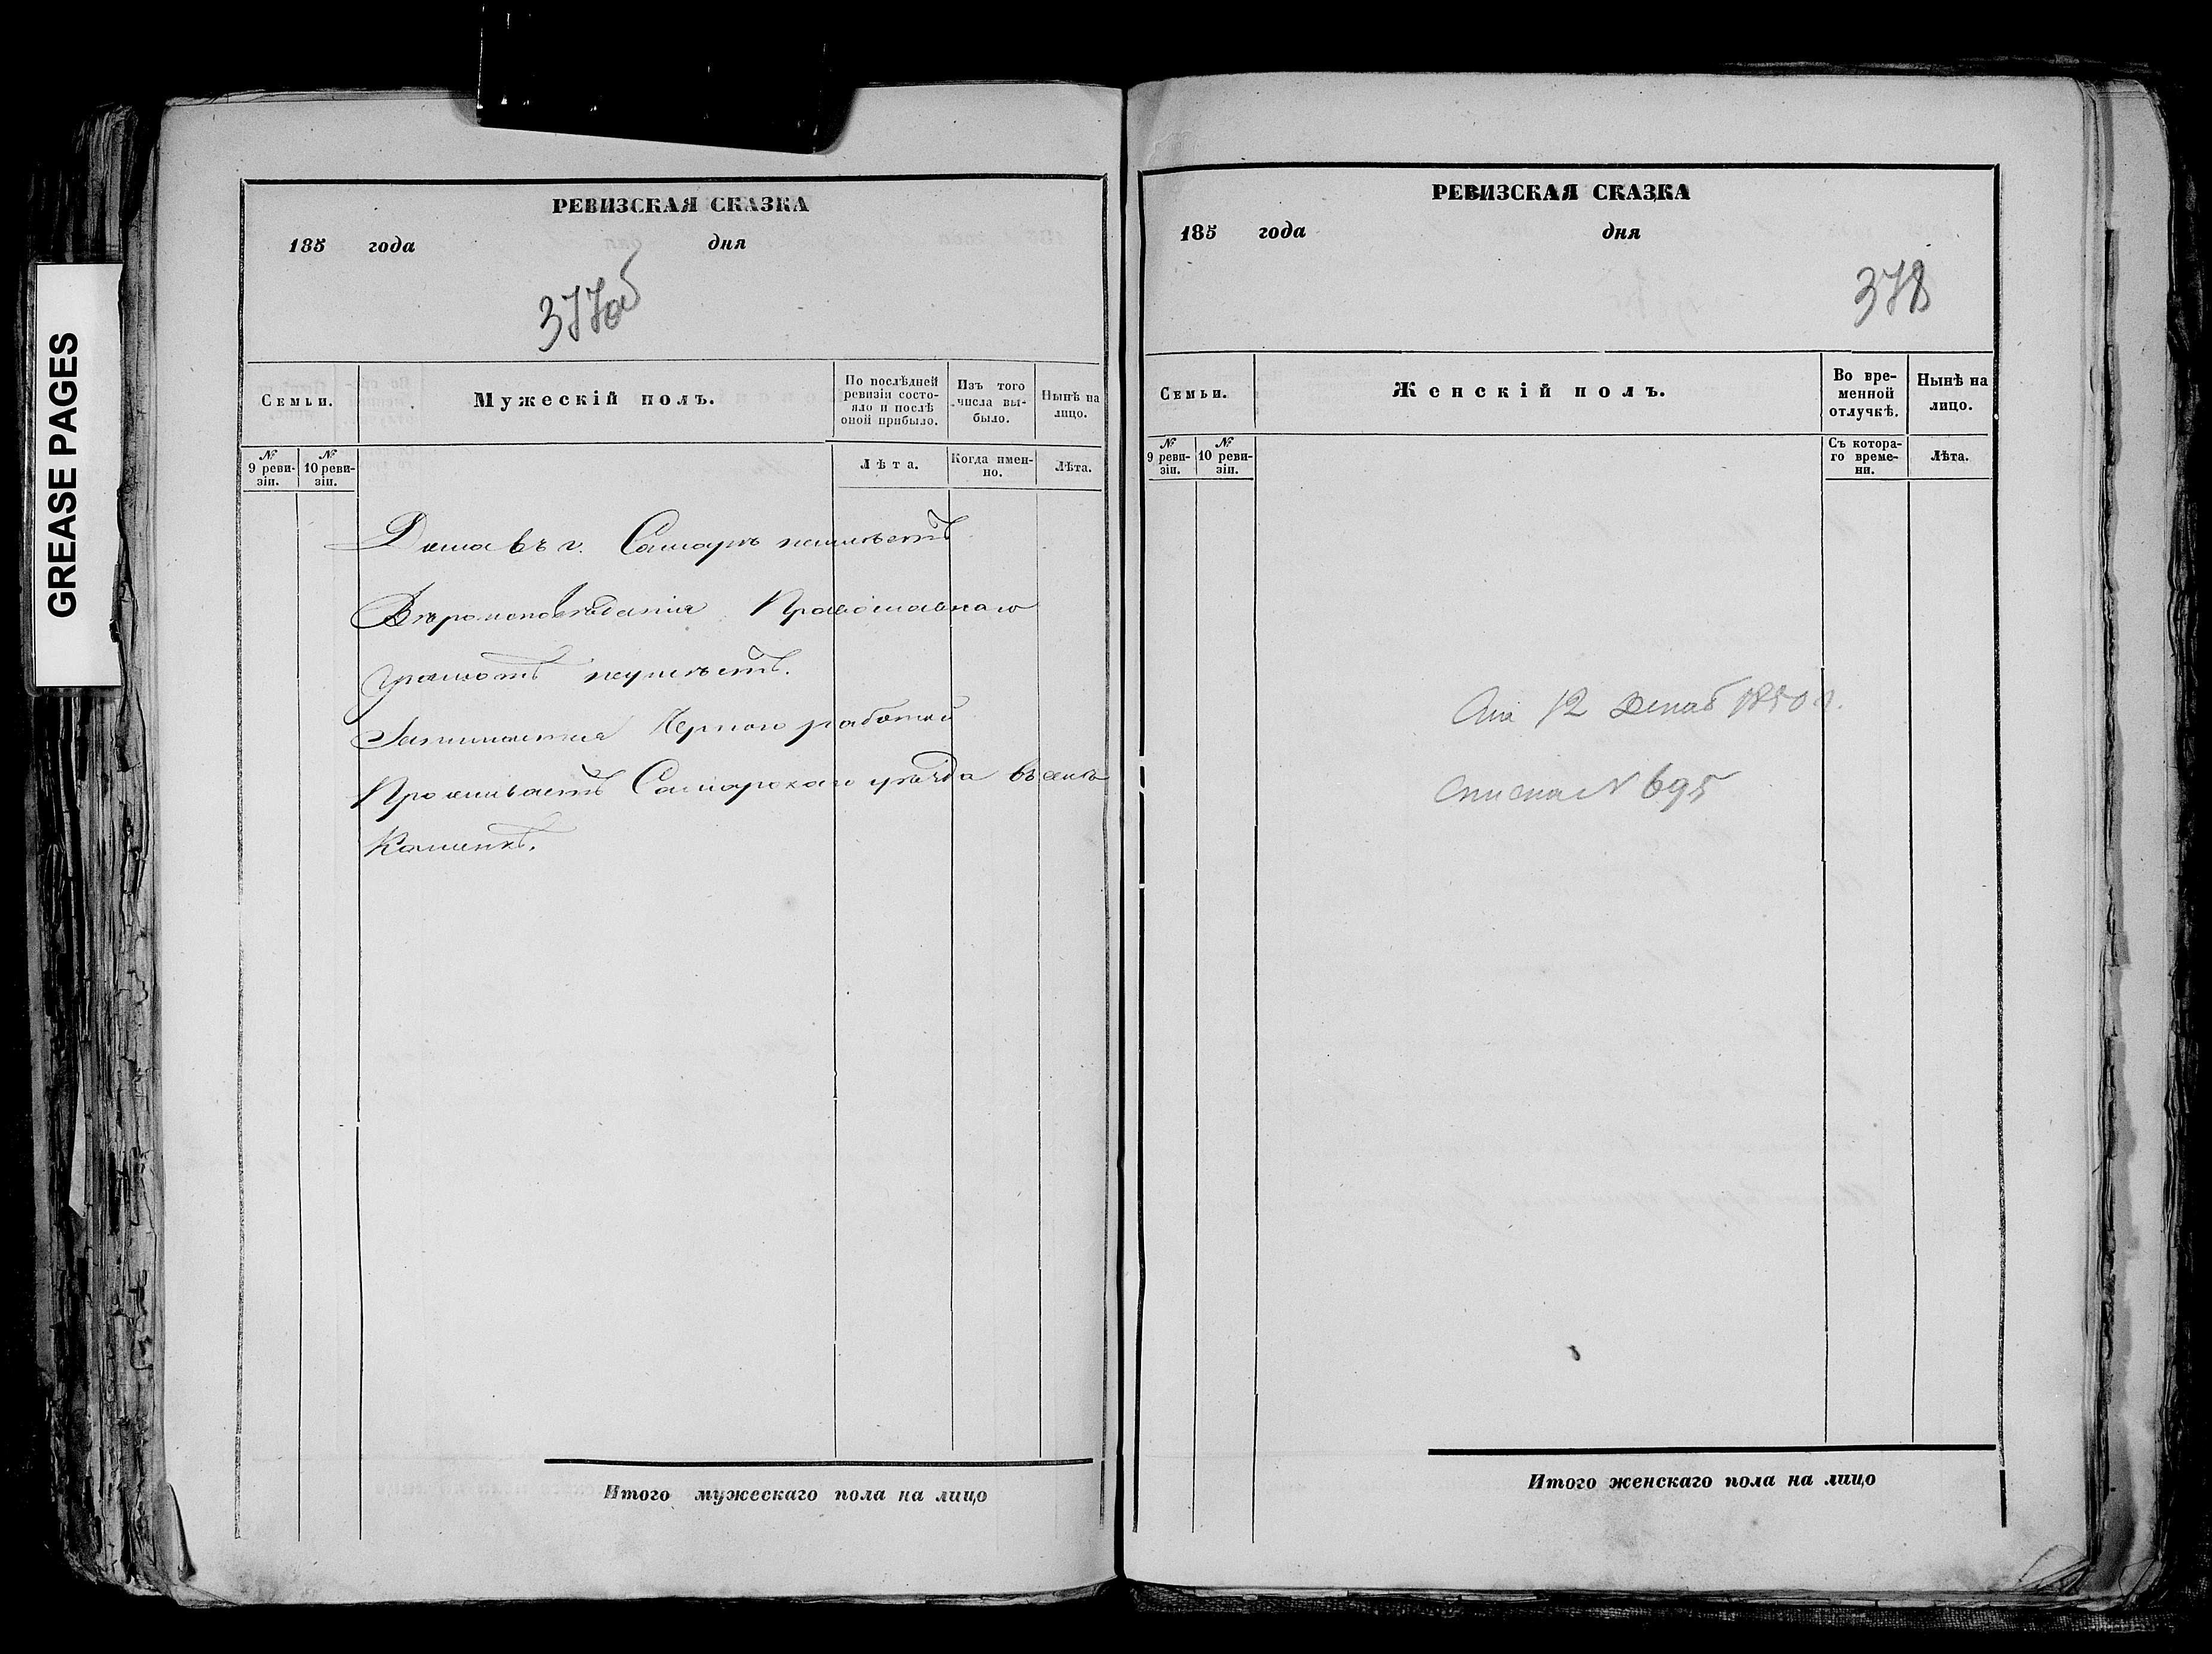 GREASE PAGES
РЕВИЗСКАЯ СКАЗКА
185 года дня
377об
Семьи.
Мужескій полъ.
По послѣдней ревизіи состояло и послѣ оной прибыло.
Изъ того числа выбыло.
Нынѣ на лицо.
№ 9 ревизіи.
№ 10 ревизіи.
Лѣта.
Когда именно.
Лѣта.
Дома въ г. Самарѣ неимѣетъ
Вѣроисповѣданія Православнаго
Грамотѣ неумѣетъ.
Занимается Черной работой
Проживаетъ Самарскаго уѣзда въ
Каменкѣ.
Итого мужескаго пола на лицо
РЕВИЗСКАЯ СКАЗКА
185 года дня
378
Семьи.
Женскій полъ.
Во временной отлучкѣ.
Нынѣ на лицо.
№ 9 ревизіи.
№ 10 ревизіи.
Съ котораго времени.
Лѣта.
12 Декаб 1850 г.
№ 695
Итого женскаго пола на лицо